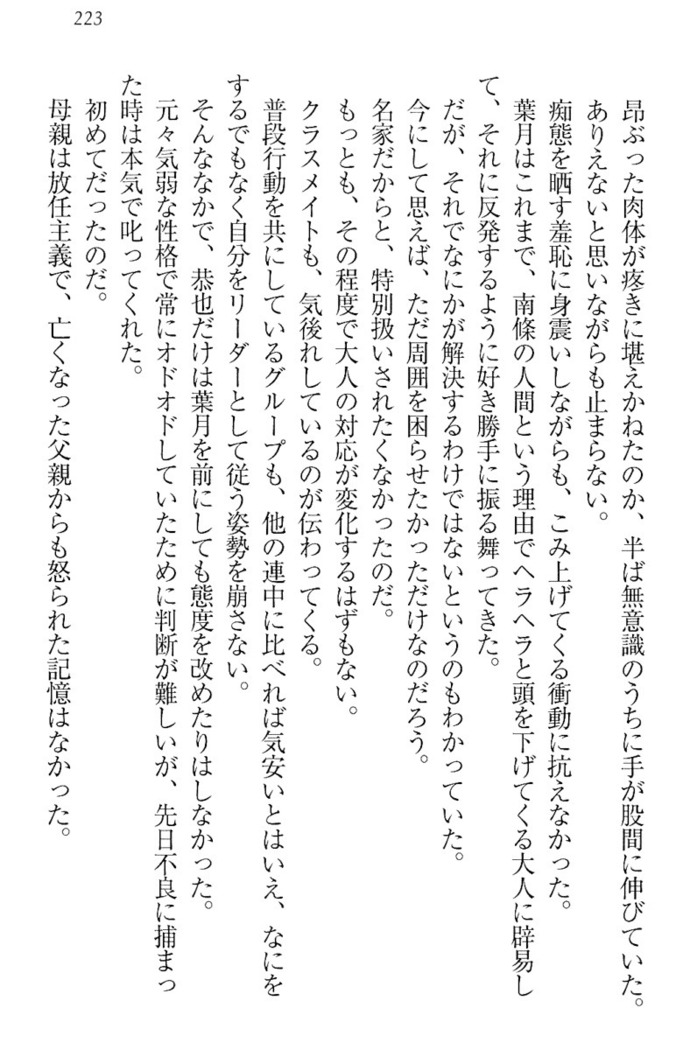 223
葉月はこれまで、南條の人間という理由でヘラヘラと頭を下げてくる大人に辟易し
て、それに反発するように好き勝手に振る舞ってきた。
だが、それでなにかが解決するわけではないというのもわかっていた。
今にして思えば、ただ周囲を困らせたかっただけなのだろう。
名家だからと、特別扱いされたくなかったのだ。
もっとも、その程度で大人の対応が変化するはずもない。
クラスメイトも、気後れしているのが伝わってくる。
普段行動を共にしているグループも、他の連中に比べれば気安いとはいえ、なにを
するでもなく自分をリーダーとして従う姿勢を崩さない。
そんななかで、恭也だけは葉月を前にしても態度を改めたりはしなかった。
元々気弱な性格で常にオドオドしていたために判断が難しいが、先日不良に捕まっ
た時は本気で叱ってくれた。
初めてだったのだ。
母親は放任主義で、亡くなった父親からも怒られた記憶はなかった。